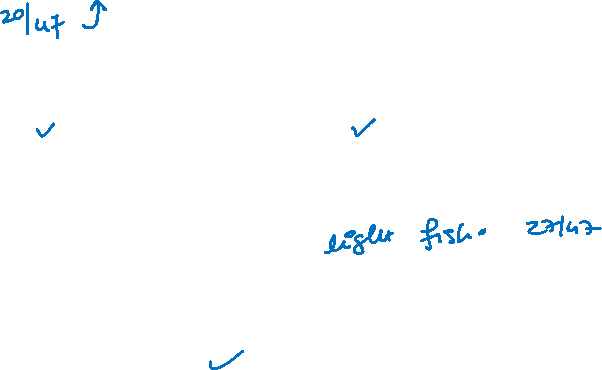 20/47
light fish. 27/47